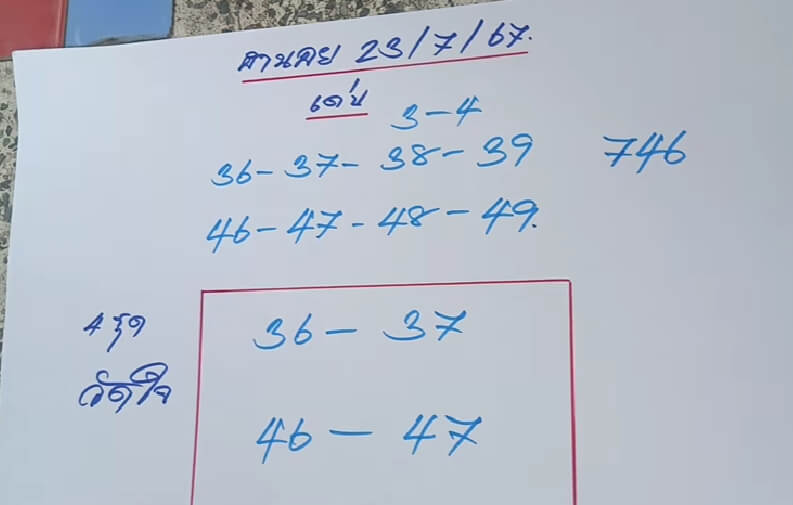 ฮานอย 23/7/67.
เด่น 3-4
36-37-38-39 746
46-47-48-49.
4 ชุด 36-37
วัดใจ
46-47